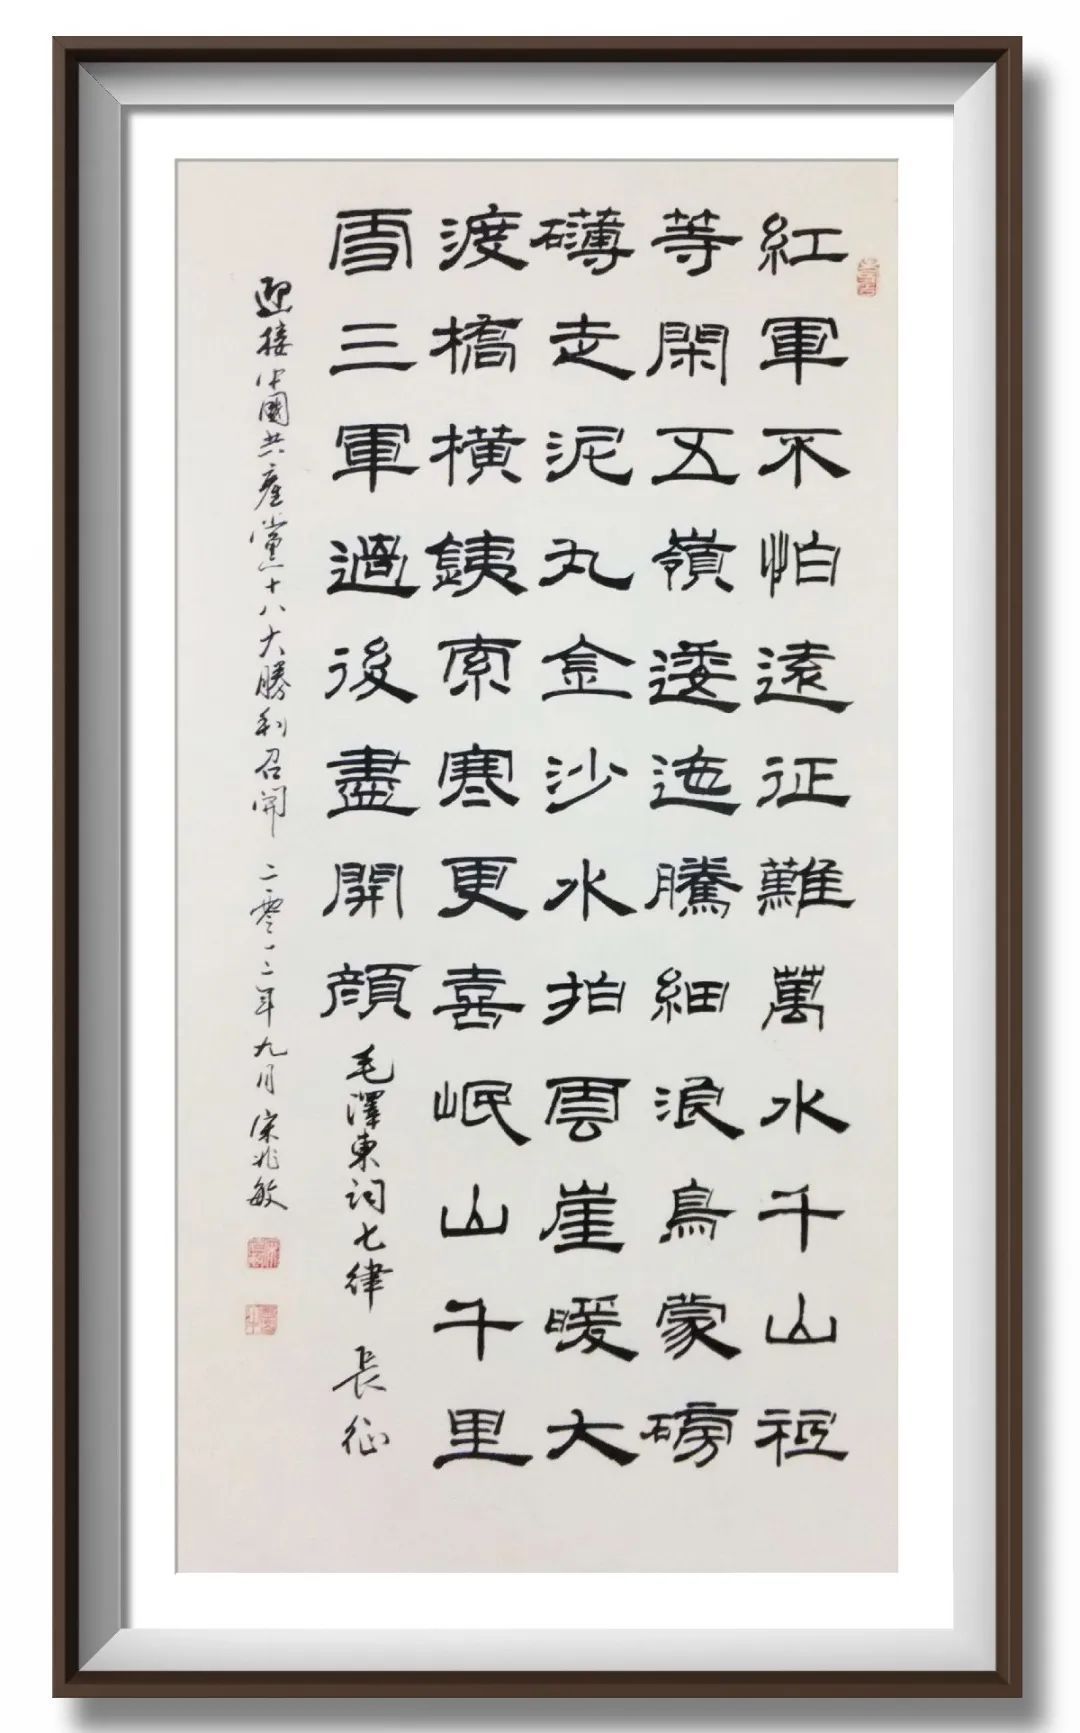 紅軍不怕遠征難萬水千山祗
等閑五嶺逶迤騰細浪烏蒙磅
礴走泥丸金沙水拍雲崖暖大
渡橋橫銕索寒更喜岷山千里
雪三軍過後盡開顔 毛澤東詞七律 長征
迎接中國共產黨十八大勝利召開 二零一二年九月 宋兆敏